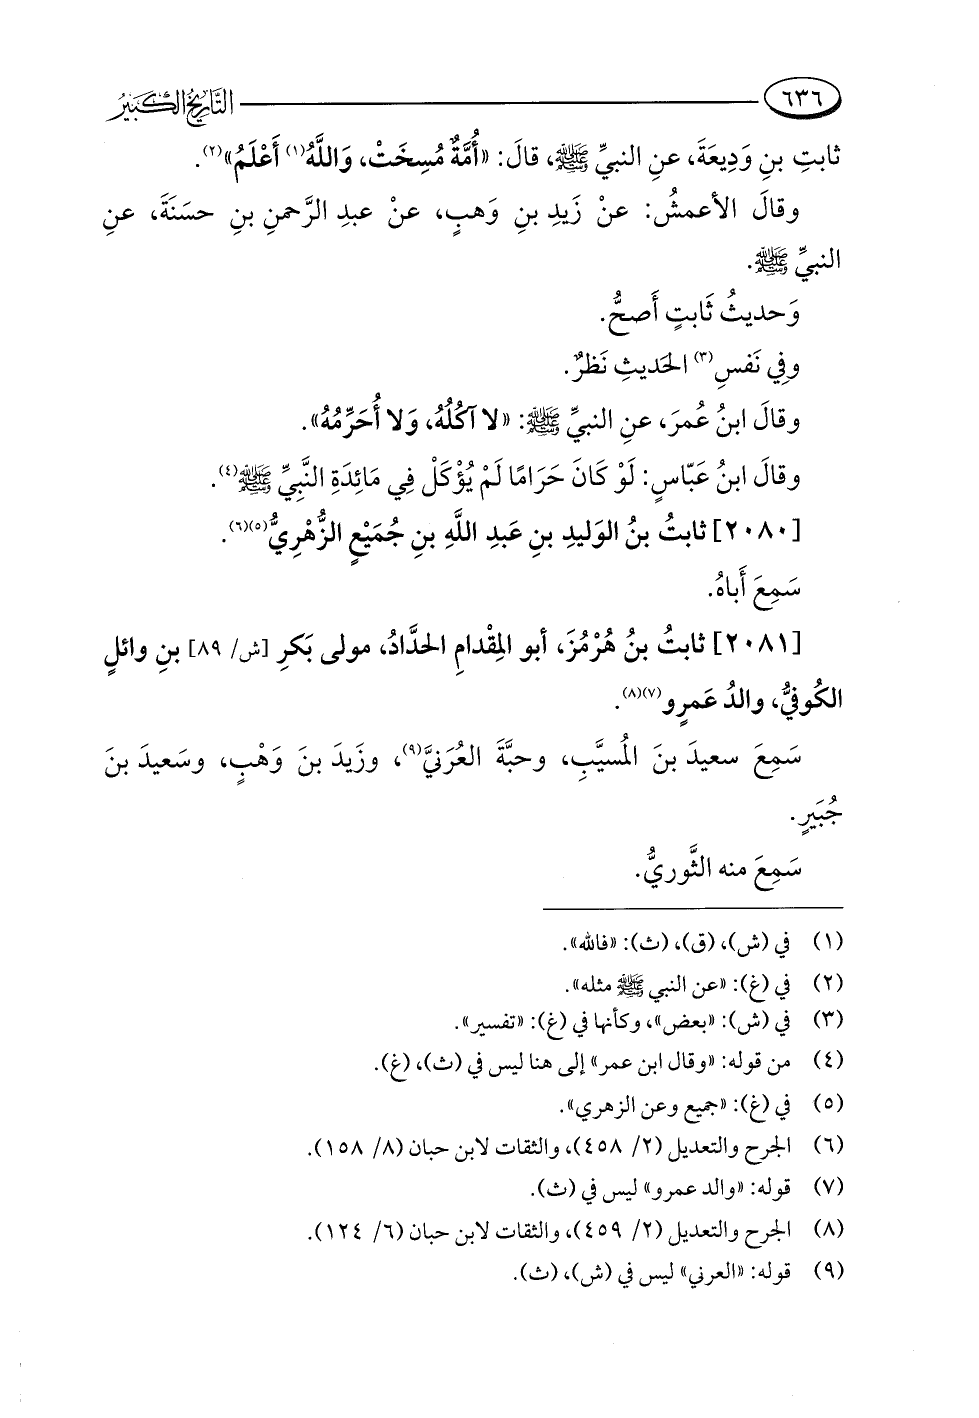 ٦٣٦ التاريخ الكبير
ثابتِ بنِ وَدِيعَةَ، عنِ النبيِّ ﷺ، قالَ: «أُمَّةٌ مُسِخَتْ، وَاللَّهُ(١) أَعْلَمُ»(٢).
وقالَ الأعمشُ: عنْ زَيدِ بنِ وَهبٍ، عنْ عبدِ الرَّحمنِ بنِ حسَنَةَ، عنِ
النبيِّ ﷺ.
وَحديثُ ثَابتٍ أَصحُّ.
وفِي نَفسِ(٣) الحَديثِ نَظرٌ.
وقالَ ابنُ عُمرَ، عنِ النبيِّ ﷺ: «لا آكُلُهُ، وَلا أُحَرِّمُهُ».
وقالَ ابنُ عَبّاسٍ: لَوْ كَانَ حَرَامًا لَمْ يُؤْكَلْ فِي مَائِدَةِ النَّبِيِّ ﷺ(٤).
[٢٠٨٠] ثابتُ بنُ الوَليدِ بنِ عَبدِ اللَّهِ بنِ جُمَيْعٍ الزُّهْرِيُّ(٥)(٦).
سَمِعَ أَباهُ.
[٢٠٨١] ثابتُ بنُ هُرْمُزَ، أبو المِقْدامِ الحَدَّادُ، مولى بَكرِ [ش/ ٨٩] بنِ وائلٍ
الكُوفيُّ، والدُ عَمرٍو(٧)(٨).
سَمِعَ سعيدَ بنَ المُسيَّبِ، وحبَّةَ العُرَنيَّ(٩)، وزَيدَ بنَ وَهْبٍ، وسَعيدَ بنَ
جُبَيرٍ.
سَمِعَ منه الثَّوريُّ.
(١) في (ش)، (ق)، (ث): «فالله».
(٢) في (غ): «عن النبي ﷺ مثله».
(٣) في (ش): «بعض»، وكأنها في (غ): «تفسير».
(٤) من قوله: «وقال ابن عمر» إلى هنا ليس في (ث)، (غ).
(٥) في (غ): «جميع وعن الزهري».
(٦) الجرح والتعديل (٢/ ٤٥٨)، والثقات لابن حبان (٨/ ١٥٨).
(٧) قوله: «والد عمرو» ليس في (ث).
(٨) الجرح والتعديل (٢/ ٤٥٩)، والثقات لابن حبان (٦/ ١٢٤).
(٩) قوله: «العرني» ليس في (ش)، (ث).